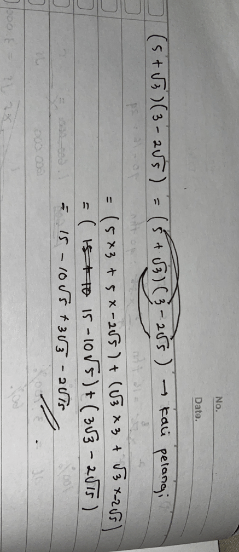 No.
Date.
(5 + √3)(3 - 2√5) = (5 + √3)(3 - 2√5) → kali pelangi
= (5 x 3 + 5 x -2√5) + (√3 x 3 + √3 x -2√5)
= ( 15 - 10√5) + (3√3 - 2√15)
= 15 - 10√5 + 3√3 - 2√15